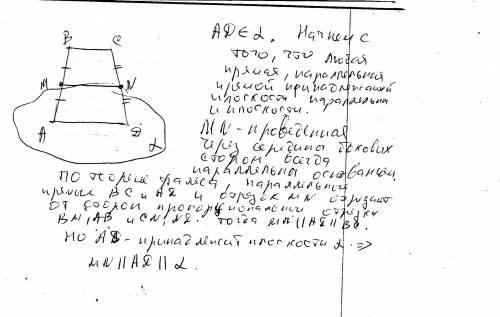 B C
M N
A D
α
AD∈α. Начнем с
того, что любая
прямая, параллельная
прямой принадлежащей
плоскости параллельна
и плоскости.
MN - проведенная
через середины боковых
сторон всегда
параллельна основаниям
по теореме Фалеса, параллельные
прямые BC и AD и отрезок MN отрезают
от сторон пропорциональные отрезки
BM:AB и CN:ND. Тогда MN||AD||BC.
Но AD - принадлежит плоскости α =>
MN||AD||α.